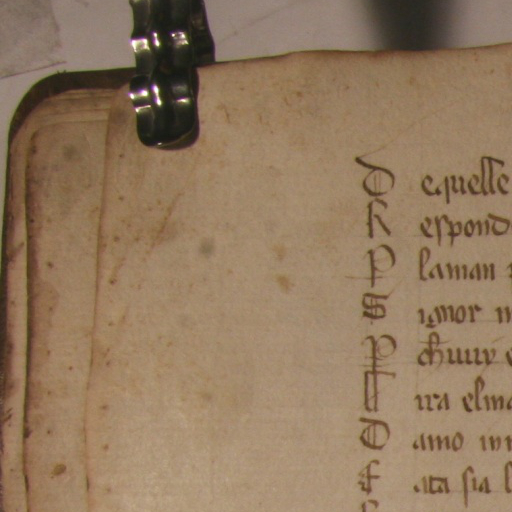 D equelle
R espond
P laman
S ignor
P
T ira elm
C amo
E ata sia l